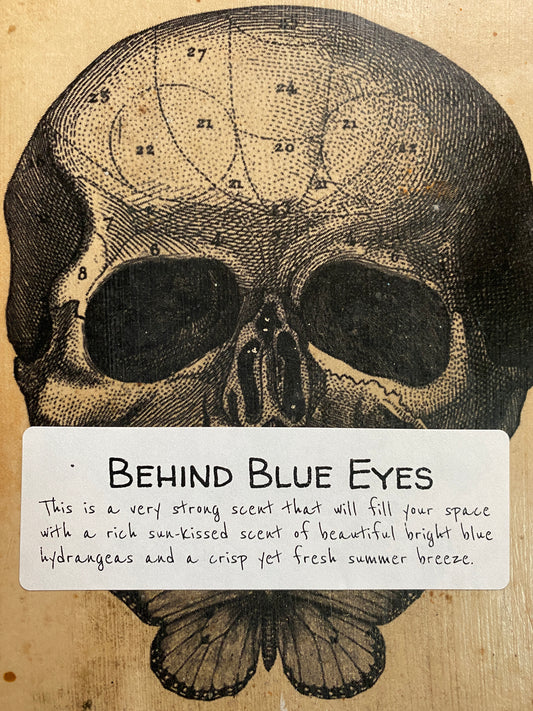 26
27
24
23 21 20 21 22
22
21 21
7
6 4 4 6
8
BEHIND BLUE EYES
This is a very strong scent that will fill your space
with a rich sun-kissed scent of beautiful bright blue
hydrangeas and a crisp yet fresh summer breeze.